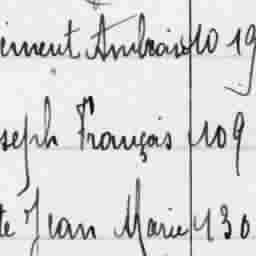 ement Ambroise 10 19
seph François 109
te Jean Marie 130